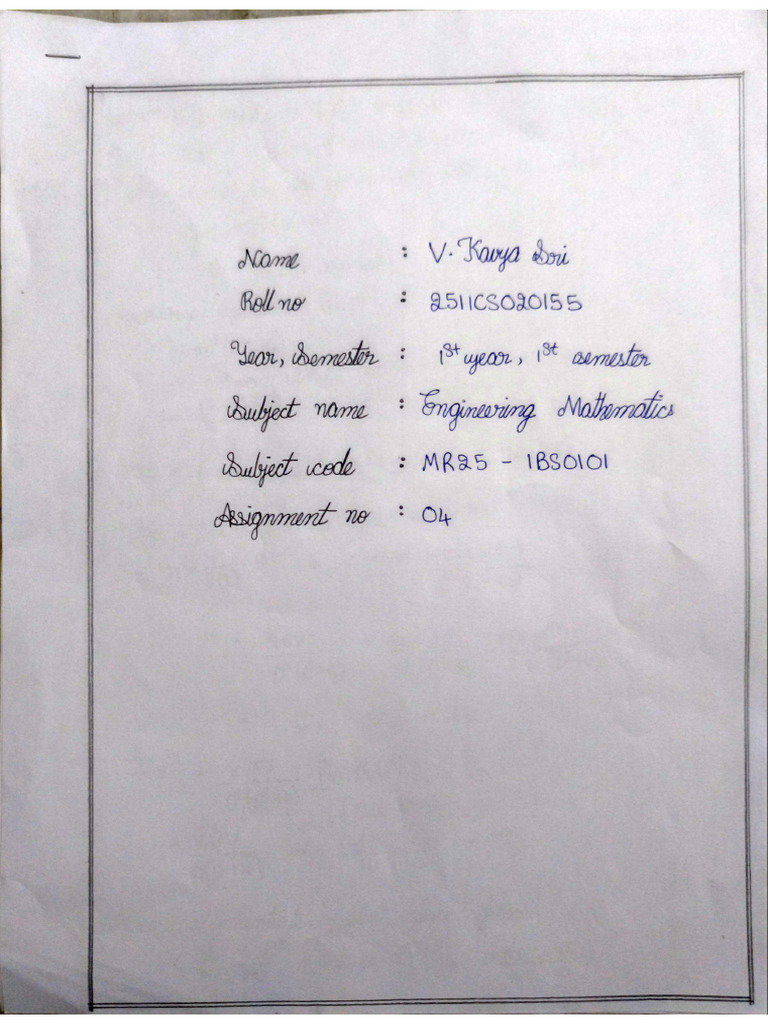 Name : V. Kavya Sri
Roll no : 2511CS020155
Year, Semester : 1st year, 1st semester
Subject name : Engineering Mathematics
Subject code : MR25 - 1BS0101
Assignment no : 04